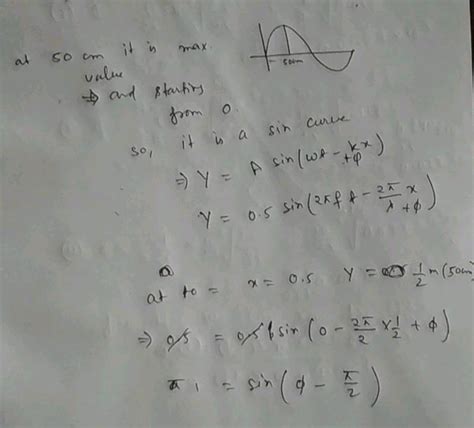 at 50 cm it is max.
value
50cm
⇒ and starting
from 0.
so, it is a sin curve
⇒ Y = A sin(ωt - kx + φ)
Y = 0.5 sin(2πft - 2π/λ x + φ)
at t0 = x = 0.5 Y = 1/2 m (50cm)
⇒ 0.5 = 0.5 sin(0 - 2π/2 × 1/2 + φ)
1 = sin(φ - π/2)